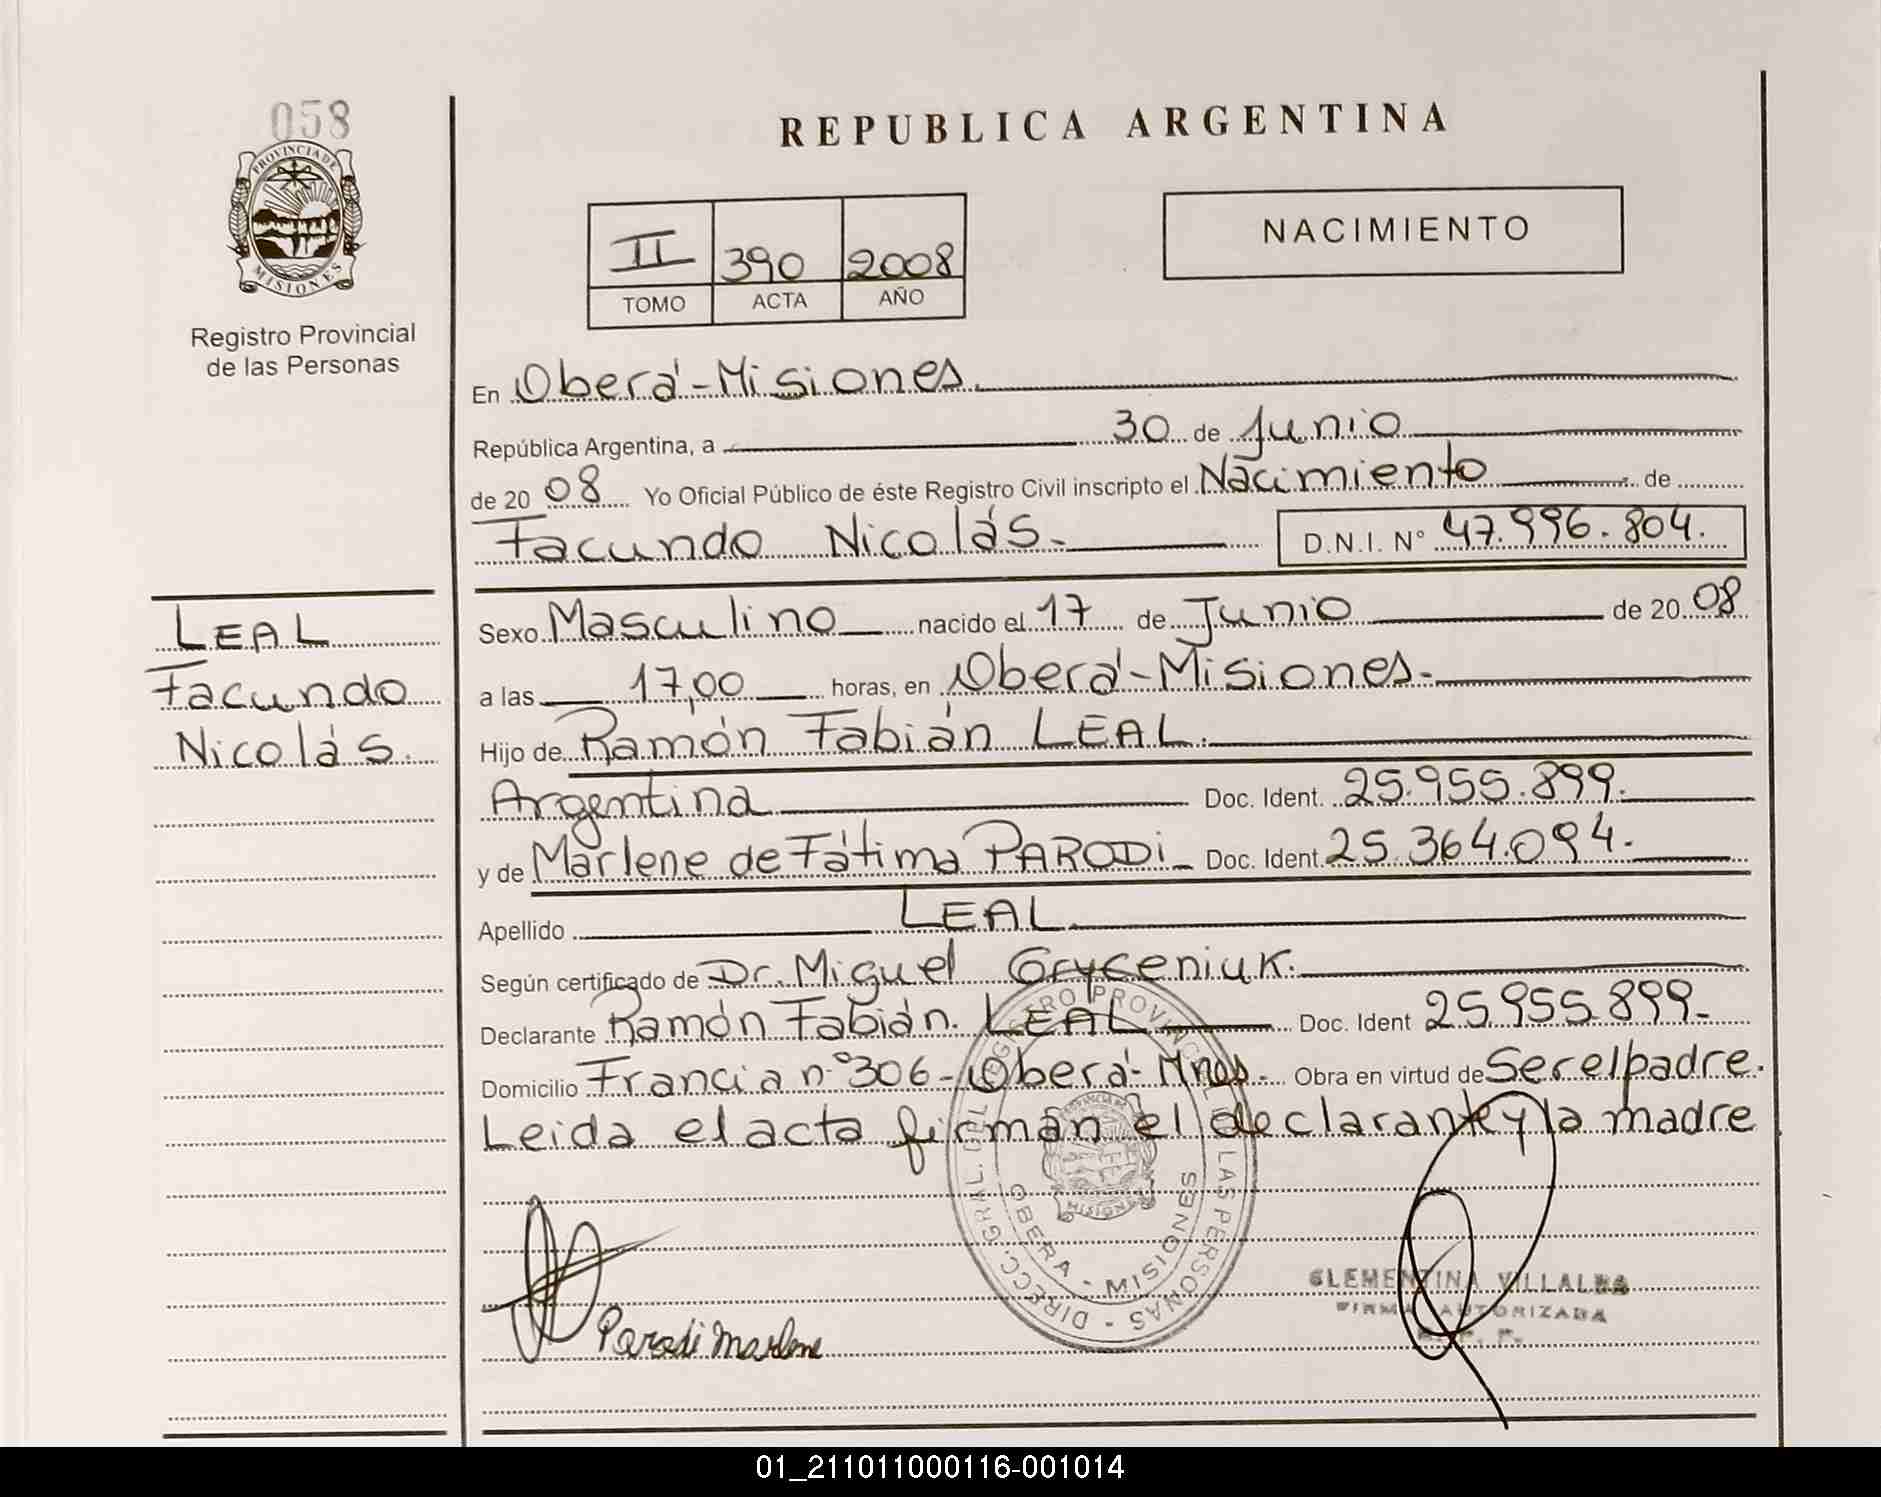 058
PROVINCIA DE
MISIONES
Registro Provincial
de las Personas
REPUBLICA ARGENTINA
II 390 2008
TOMO ACTA AÑO
NACIMIENTO
En Oberá-Misiones.
República Argentina, a 30 de Junio
de 20 08 Yo Oficial Público de éste Registro Civil inscripto el Nacimiento de
Facundo Nicolás. D.N.I. N° 47.996.804.
LEAL
Facundo
Nicolás.
Sexo Masculino nacido el 17 de Junio de 20 08
a las 17,00 horas, en Oberá-Misiones.
Hijo de Ramón Fabián LEAL.
Argentina Doc. Ident. 25.955.899.
y de Marlene de Fátima PARODi Doc. Ident. 25.364.094.
Apellido LEAL
Según certificado de Dr. Miguel Gryceniuk.
Declarante Ramón Fabián. LEAL Doc. Ident 25.955.899.
Domicilio Francia n°306-Oberá-Mnes. Obra en virtud de Ser el padre.
Leida el acta firman el declarante y la madre
DIRECC. GRAL. DEL REGISTRO PROVINCIAL DE LAS PERSONAS
OBERA - MISIONES
Parodi Marlene
CLEMENTINA VILLALBA
FIRMA AUTORIZADA
01_211011000116-001014